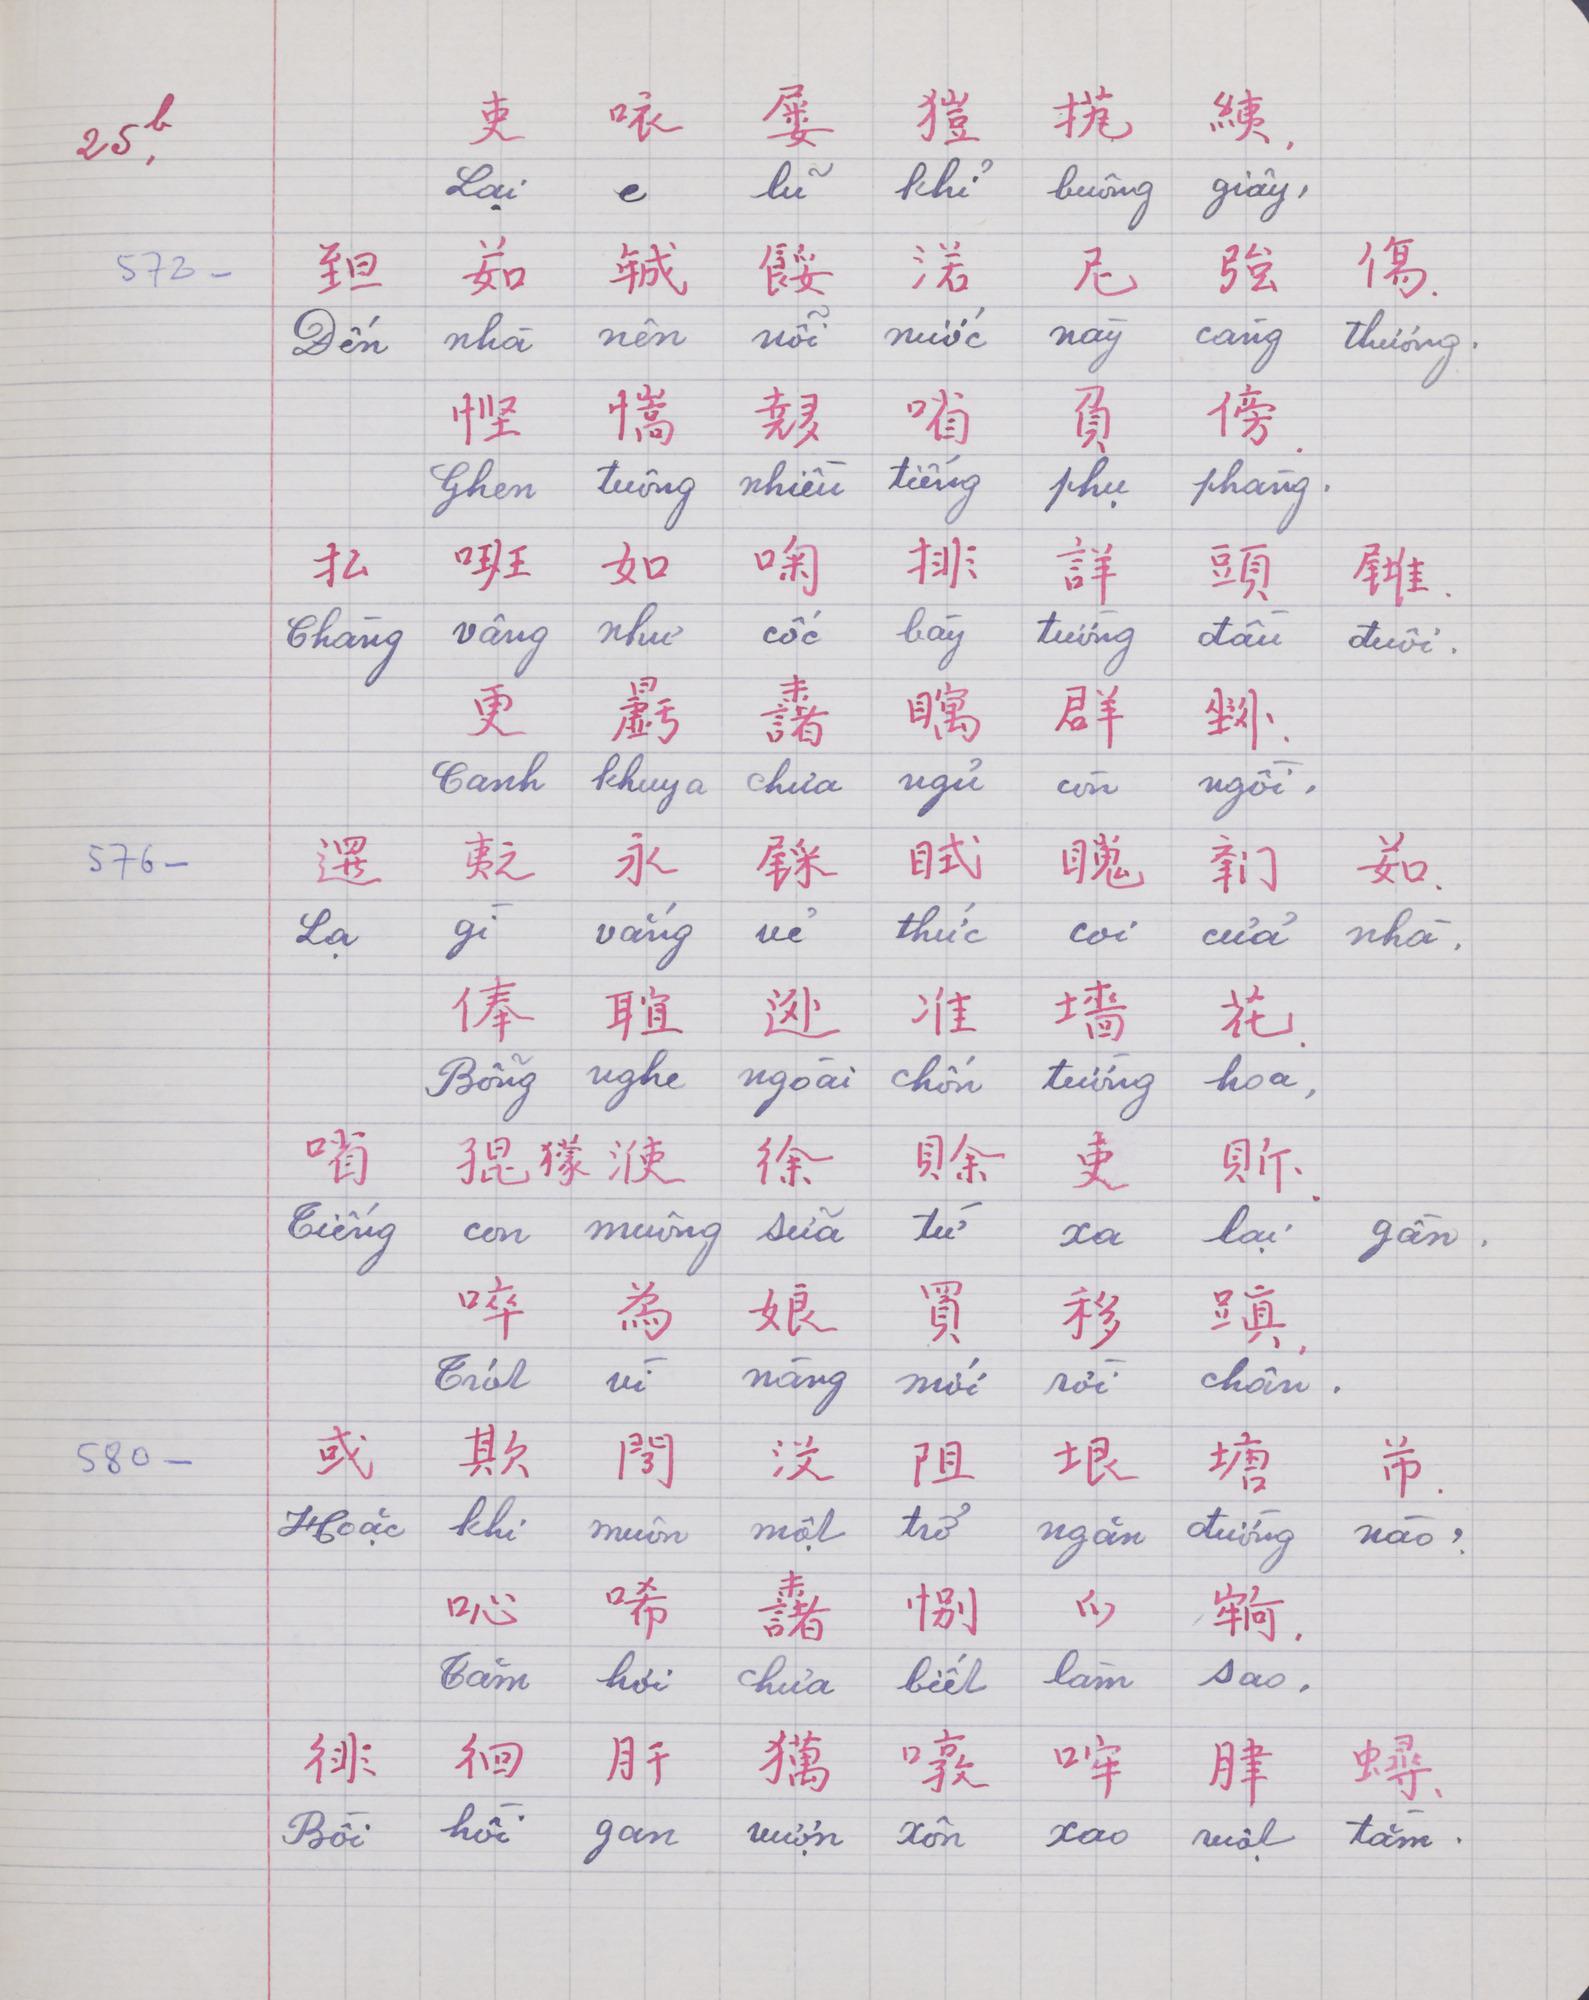 25b.
吏 㕵 屡 𤠲 𢭾 練,
Lại e lũ khỉ buông giây,
572 –
𦤾 茹 𢧚 餒 渃 尼 強 傷.
Đến nhà nên nỗi nước này càng thương.
慳 𢠿 𡗊 㗂 負 傍.
Ghen tuông nhiều tiếng phụ phàng.
払 㖡 如 㗕 排 詳 頭 𡳪.
Chàng vâng như cốc bày tường đầu đuôi.
更 𣌉 𣗓 𥄭 群 𡎥.
Canh khuya chưa ngủ còn ngồi,
576 –
邏 之 永 𨤔 𥅞 䁛 𨷯 茹.
Lạ gì vắng vẻ thức coi cửa nhà,
俸 𦖑 外 准 墻 花.
Bỗng nghe ngoài chốn tường hoa,
㗂 猑 獴 𣾼 徐 賖 吏 𧵆.
Tiếng con muông sủa từ xa lại gần.
啐 為 娘 買 移 蹎,
Trót vì nàng mới rời chân.
580 –
或 欺 㦖 沒 阻 垠 塘 芇.
Hoặc khi muôn một trở ngăn đường nào?
吣 唏 𣗓 別 𫜵 牢.
Tăm hơi chưa biết làm sao,
徘 徊 肝 𤠶 㖔 哰 𦛌 蟳.
Bồi hồi gan vượn xôn xao ruột tằm.